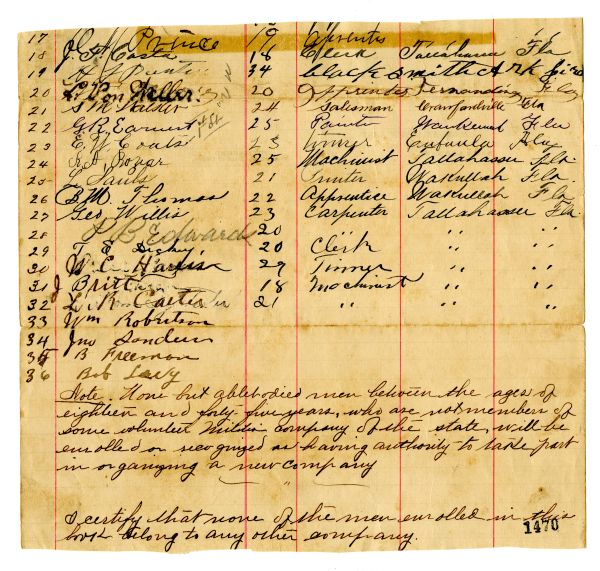 17 J. H. Prince 19
18 J. A. Casta 18 Clerk Tallahassee Fla
19 34 blacksmith Ark
20 L. B. Miller 20 Apprentes Fernandina Fla
21 24 Salisman Crawfordville Fla
22 G R Earnest 25 Painter Fla
23 E. W. Coats 23 Tinner Eufaula Ala
24 25 Machinist Tallahassee Fla.
25 21 Printer Wakullah Fla.
26 B. M. Thomas 22 Apprentice Wakullah Fla
27 Geo. Willis 23 Carpenter Tallahassee Fla.
28 P B Edwards 20 " "
29 T. E. 20 Clerk " "
30 W. C. 29 Tinner " "
31 J Britt 18 Machinist " "
32 L. R. Carter 21 " " "
33 Wm Robertson
34 Jno Sanders
35 B Freeman
36 Bob Lavy
Note. None but ablebodied men between the ages of
eighteen and forty-five years, who are not members of
some volunteer militia company of the state, will be
enrolled or recognized as having authority to take part
in organizing a new company
I certify that none of the men enrolled in this
book belong to any other company.
1470